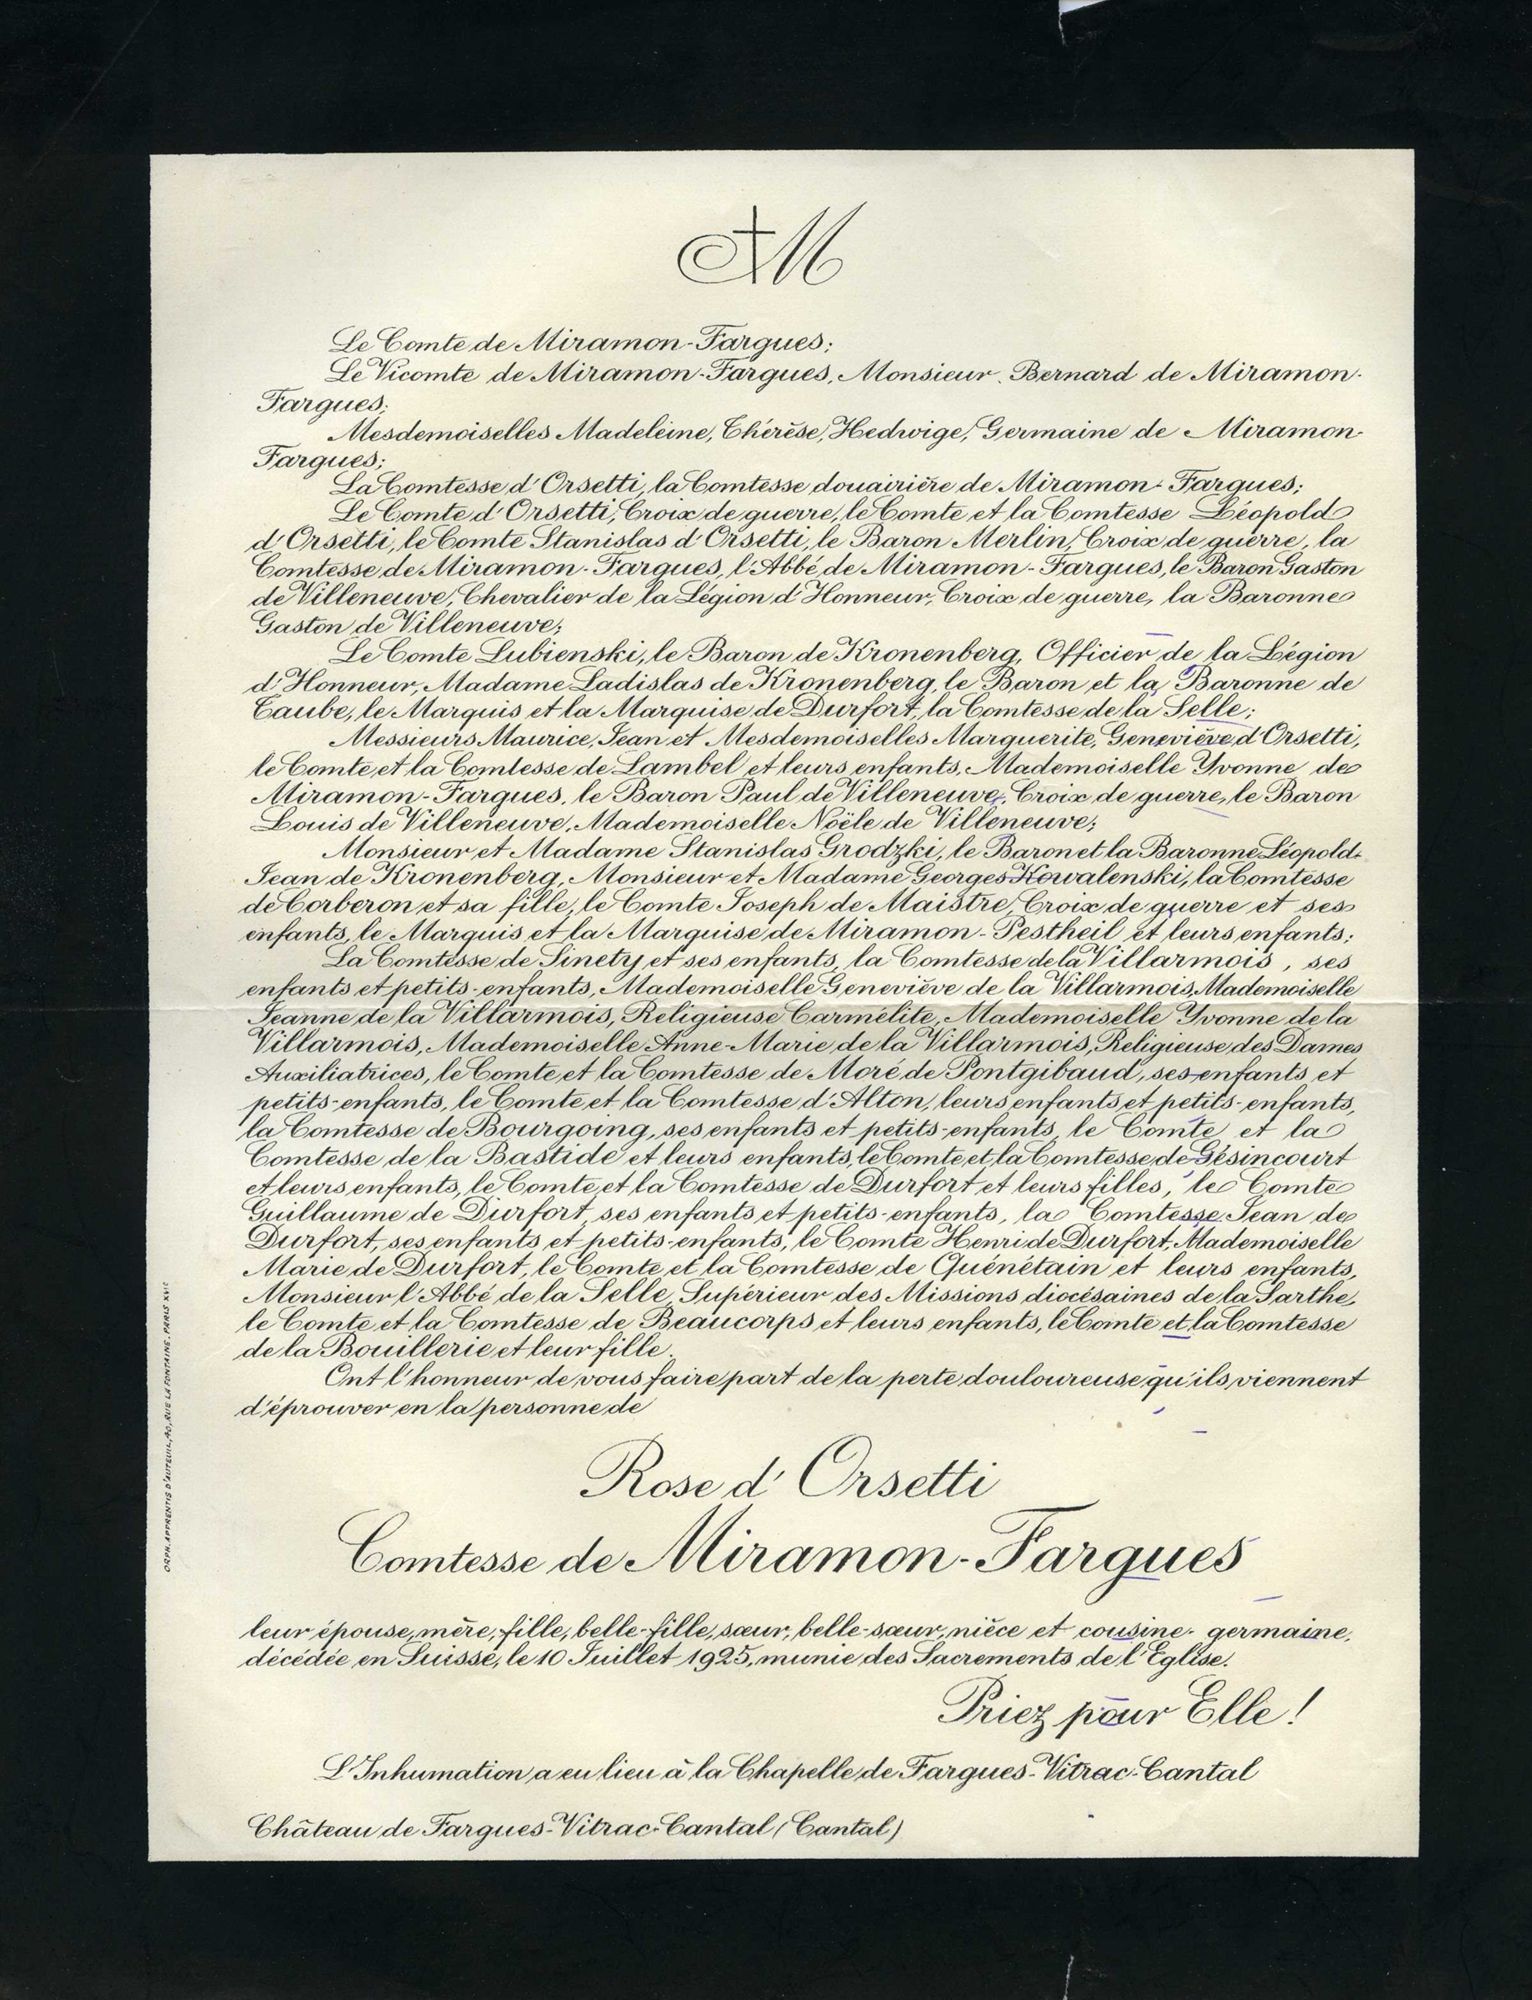 M
Le Comte de Miramon-Fargues;
Le Vicomte de Miramon-Fargues, Monsieur Bernard de Miramon-
Fargues;
Mesdemoiselles Madeleine, Thérèse, Hedwige, Germaine de Miramon-
Fargues;
La Comtesse d'Orsetti, la Comtesse douairière de Miramon-Fargues;
Le Comte d'Orsetti, Croix de guerre, le Comte et la Comtesse Léopold
d'Orsetti, le Comte Stanislas d'Orsetti, le Baron Merlin, Croix de guerre, la
Comtesse de Miramon-Fargues, l'Abbé de Miramon-Fargues, le Baron Gaston
de Villeneuve, Chevalier de la Légion d'Honneur, Croix de guerre, la Baronne
Gaston de Villeneuve;
Le Comte Lubienski, le Baron de Kronenberg, Officier de la Légion
d'Honneur, Madame Ladislas de Kronenberg, le Baron et la Baronne de
Taube, le Marquis et la Marquise de Durfort, la Comtesse de la Selle;
Messieurs Maurice, Jean et Mesdemoiselles Marguerite, Geneviève d'Orsetti,
le Comte et la Comtesse de Lambel et leurs enfants, Mademoiselle Yvonne de
Miramon-Fargues, le Baron Paul de Villeneuve, Croix de guerre, le Baron
Louis de Villeneuve, Mademoiselle Noële de Villeneuve;
Monsieur et Madame Stanislas Grodzki, le Baron et la Baronne Léopold-
Jean de Kronenberg, Monsieur et Madame Georges Kowalenski, la Comtesse
de Corberon et sa fille, le Comte Joseph de Maistre, Croix de guerre et ses
enfants, le Marquis et la Marquise de Miramon-Pestheil et leurs enfants;
La Comtesse de Sinety et ses enfants, la Comtesse de la Villarmois, ses
enfants et petits-enfants, Mademoiselle Geneviève de la Villarmois, Mademoiselle
Jeanne de la Villarmois, Religieuse Carmélite, Mademoiselle Yvonne de la
Villarmois, Mademoiselle Anne-Marie de la Villarmois, Religieuse des Dames
Auxiliatrices, le Comte et la Comtesse de Moré de Pontgibaud, ses enfants et
petits-enfants, le Comte et la Comtesse d'Alton, leurs enfants et petits-enfants,
la Comtesse de Bourgoing, ses enfants et petits-enfants, le Comte et la
Comtesse de la Bastide et leurs enfants, le Comte et la Comtesse de Gésincourt
et leurs enfants, le Comte et la Comtesse de Durfort et leurs filles, le Comte
Guillaume de Durfort, ses enfants et petits-enfants, la Comtesse Jean de
Durfort, ses enfants et petits-enfants, le Comte Henri de Durfort, Mademoiselle
Marie de Durfort, le Comte et la Comtesse de Quénétain et leurs enfants,
Monsieur l'Abbé de la Selle, Supérieur des Missions diocésaines de la Sarthe,
le Comte et la Comtesse de Beaucorps et leurs enfants, le Comte et la Comtesse
de la Bouillerie et leur fille.
Ont l'honneur de vous faire part de la perte douloureuse qu'ils viennent
d'éprouver en la personne de
Rose d'Orsetti
Comtesse de Miramon-Fargues
leur épouse, mère, fille, belle-fille, sœur, belle-sœur, nièce et cousine germaine,
décédée en Suisse, le 10 Juillet 1925, munie des Sacrements de l'Eglise.
Priez pour Elle!
L'Inhumation a eu lieu à la Chapelle de Fargues-Vitrac-Cantal
Château de Fargues-Vitrac-Cantal (Cantal)
ORPH. APPRENTIS D'AUTEUIL, 40, RUE LA FONTAINE. PARIS XVIE